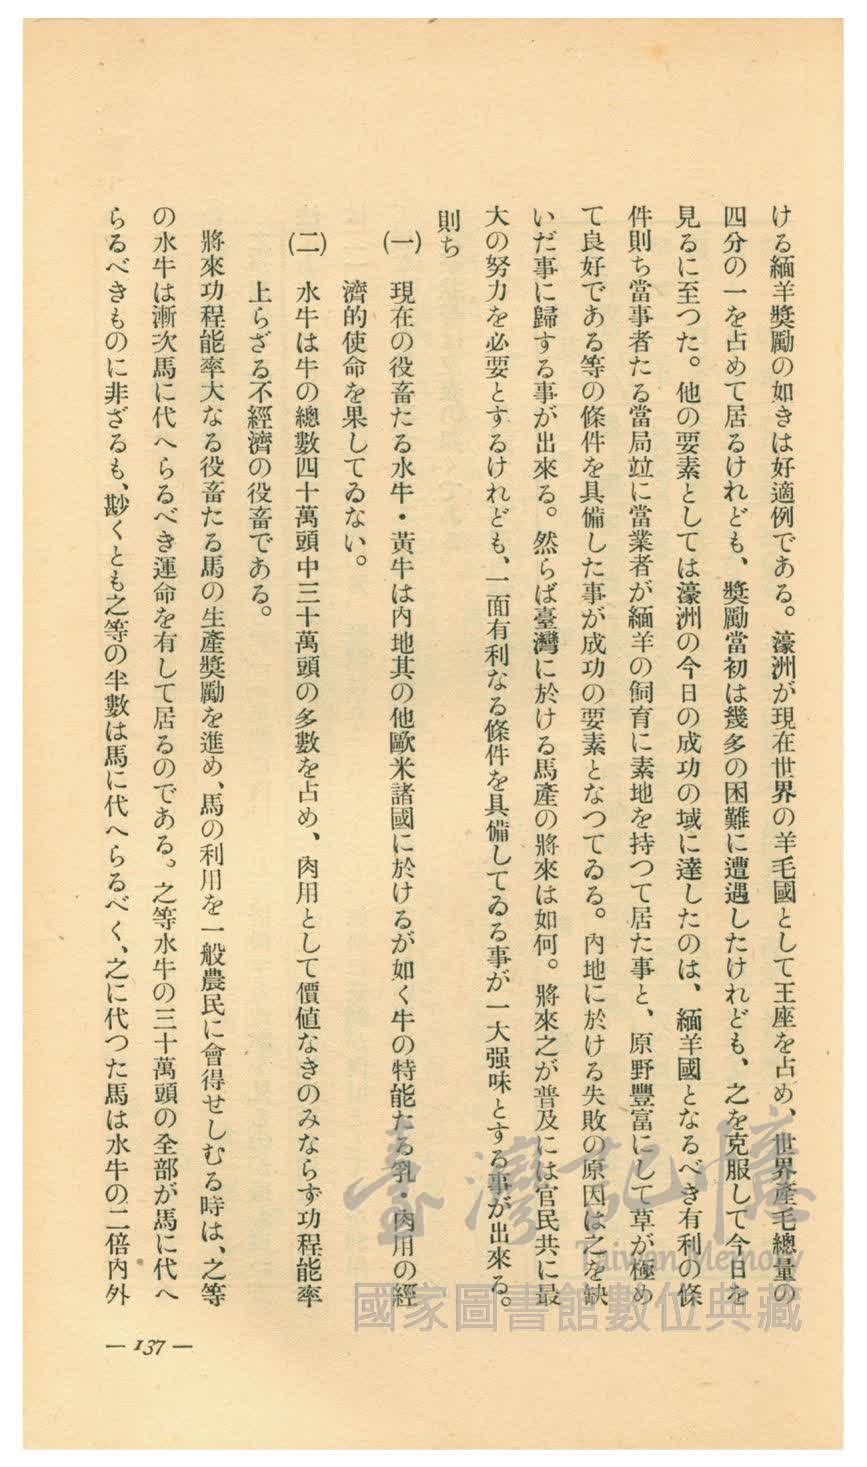 ける緬羊獎勵の如きは好適例である。濠洲が現在世界の羊毛國として王座を占め、世界產毛總量の
四分の一を占めて居るけれども、獎勵當初は幾多の困難に遭遇したけれども、之を克服して今日を
見るに至つた。他の要素としては濠洲の今日の成功の域に達したのは、緬羊國となるべき有利の條
件則ち當事者たる當局竝に當業者が緬羊の飼育に素地を持つて居た事と、原野豐富にして草が極め
て良好である等の條件を具備した事が成功の要素となつてゐる。內地に於ける失敗の原因は之を缺
いだ事に歸する事が出來る。然らば臺灣に於ける馬產の將來は如何。將來之が普及には官民共に最
大の努力を必要とするけれども、一面有利なる條件を具備してゐる事が一大强味とする事が出來る。
則ち
(一) 現在の役畜たる水牛・黃牛は內地其の他歐米諸國に於けるが如く牛の特能たる乳・肉用の經
濟的使命を果してゐない。
(二) 水牛は牛の總數四十萬頭中三十萬頭の多數を占め、肉用として價値なきのみならず功程能率
上らざる不經濟の役畜である。
將來功程能率大なる役畜たる馬の生產獎勵を進め、馬の利用を一般農民に會得せしむる時は、之等
の水牛は漸次馬に代へらるべき運命を有して居るのである。之等水牛の三十萬頭の全部が馬に代へ
らるべきものに非ざるも、尠くとも之等の半數は馬に代へらるべく、之に代つた馬は水牛の二倍內外
— 137 —
臺灣記憶
Taiwan Memory
國家圖書館數位典藏